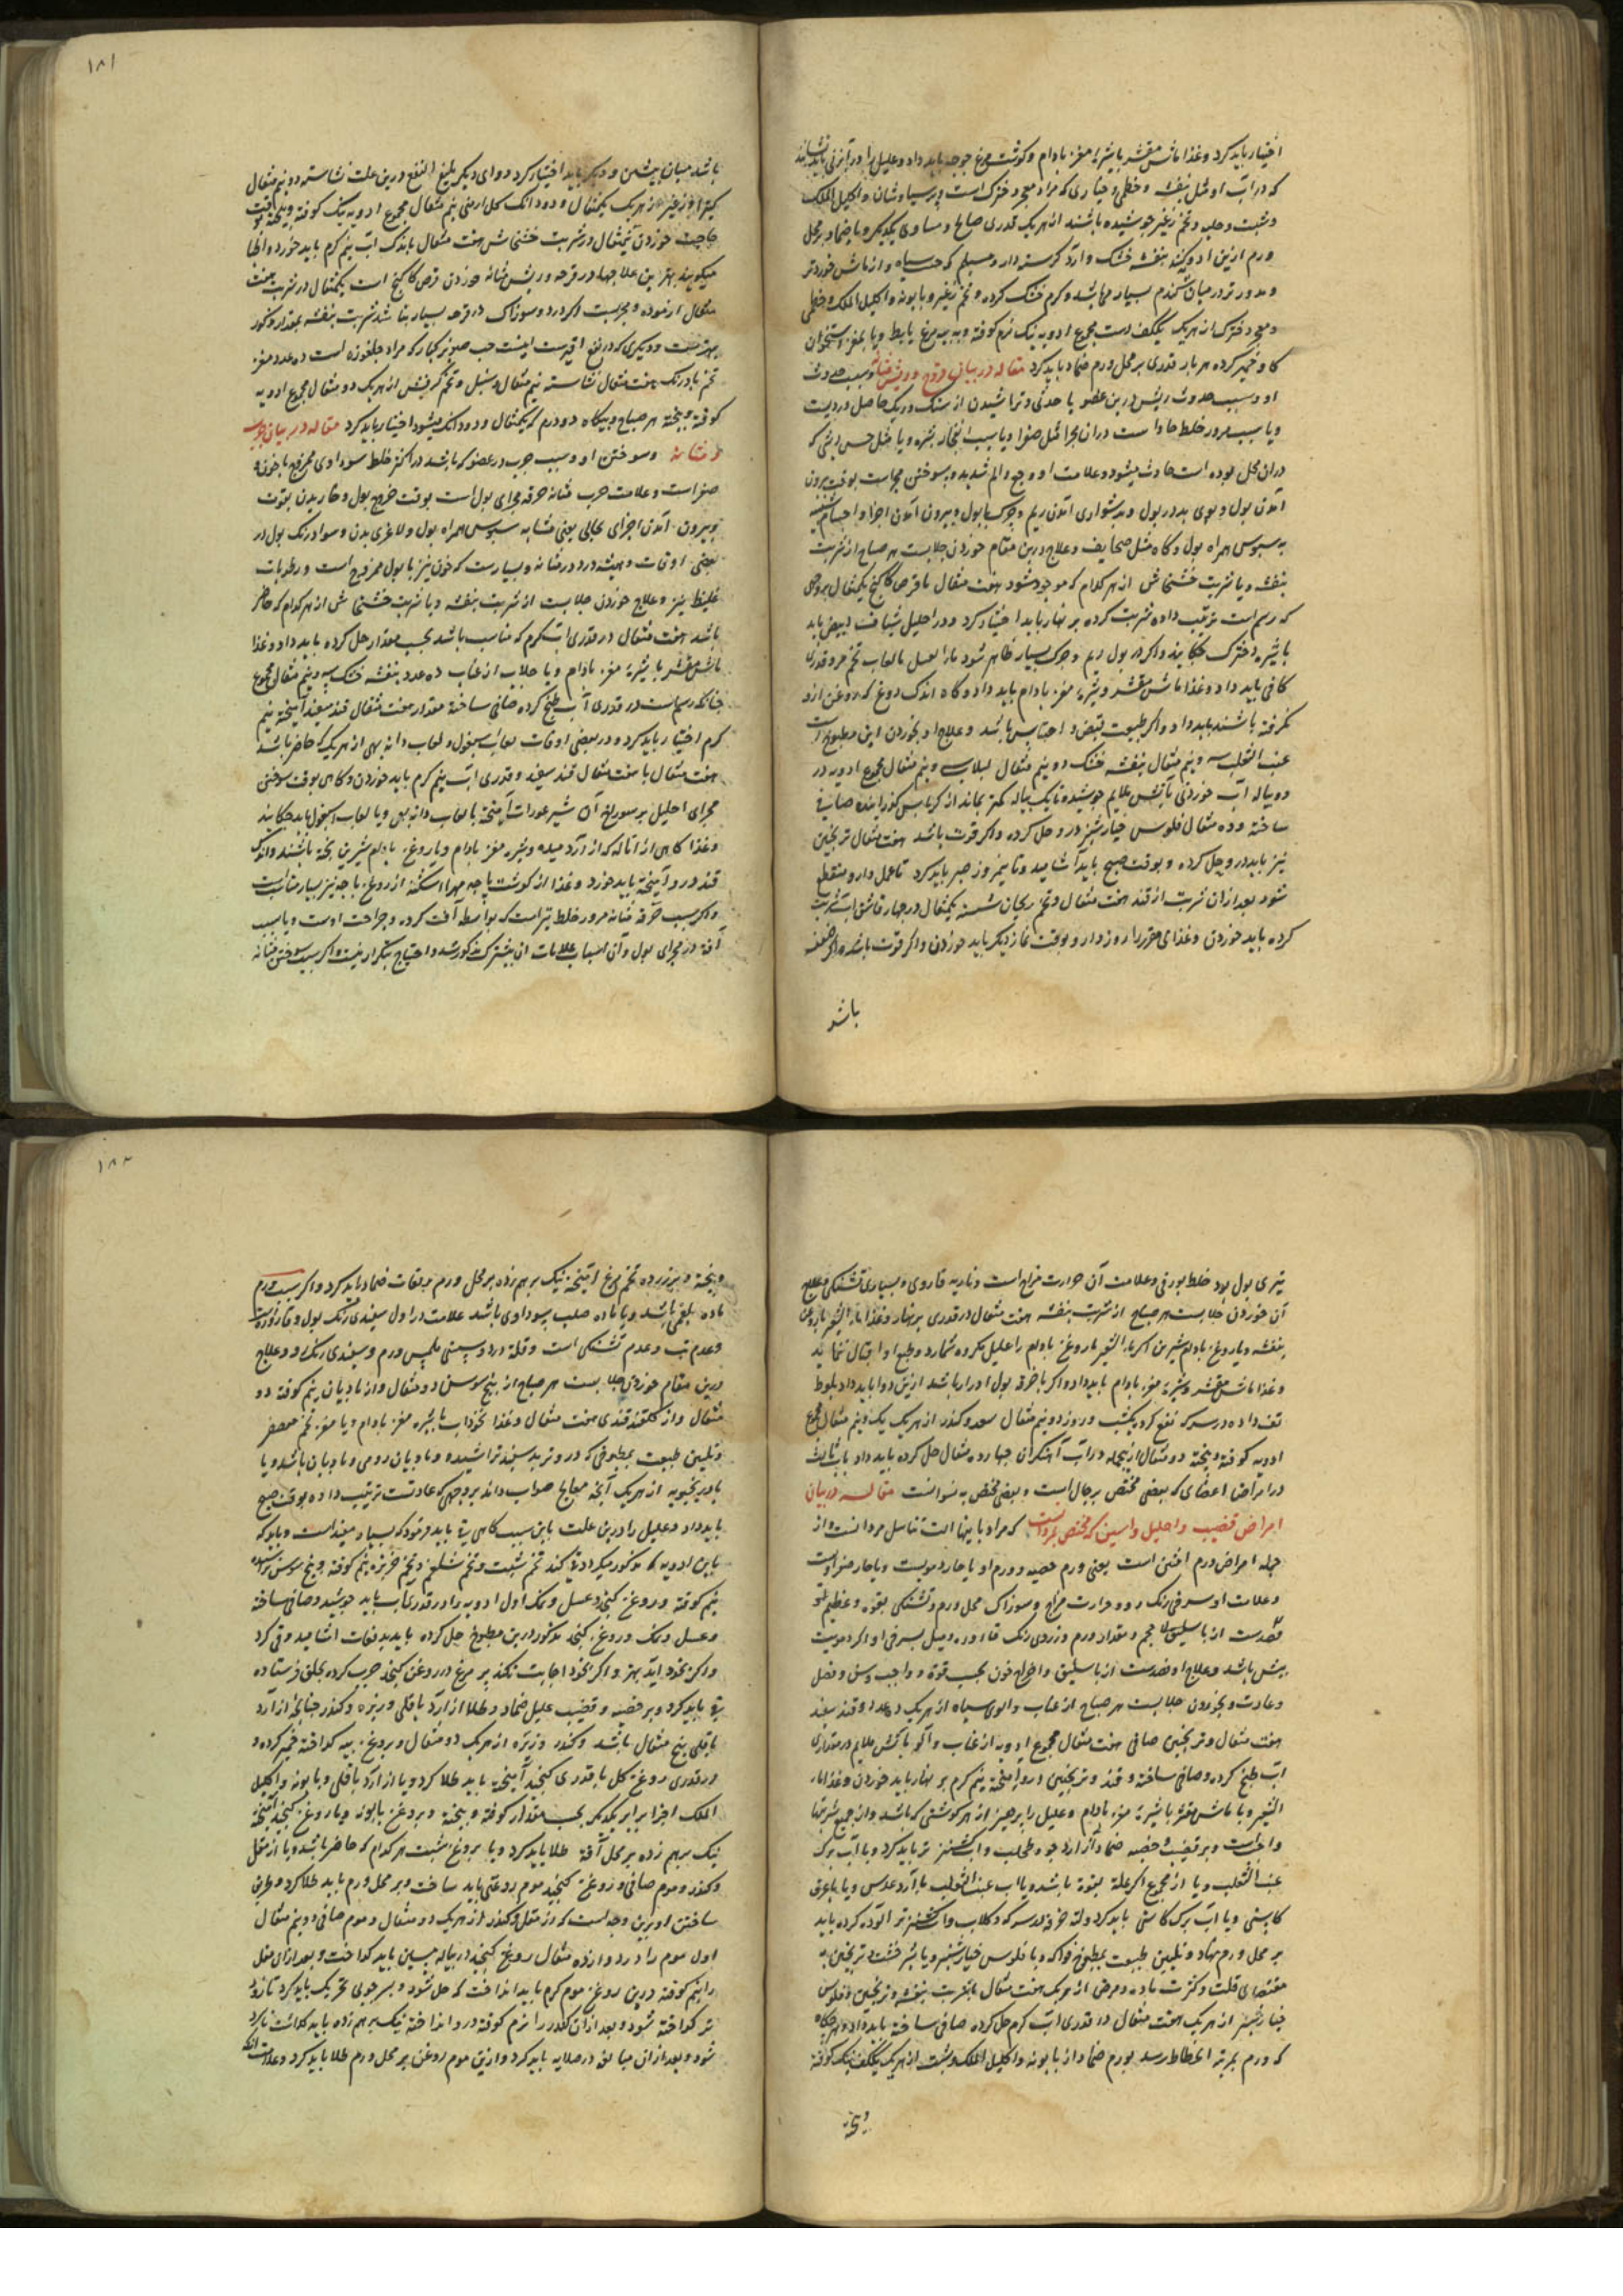 اختیار باید کرد و غذا ماش مقشر با شیره مغز بادام و گوشت مرغ جوجه باید داد و علیل را در آبزنی باید نشاند
که در آب او مثل بنفشه و خطمی و خبازی که مراد هیچ دخترک است و پرسیاوشان و اکلیل الملک
و شبت و حلبه و تخم زغیر جوشیده باشند از هر یک قدری صالح و مساوی یکدیگر و یا ضماد بر محل
ورم ازین ادویه کنند بنفشه خشک و آرد کرسنه دارو
و مدور تر در میان گندم بسیار می باشد و کرم خشک کرده و تخم زغیر و بابونه و اکلیل الملک و خطمی
از هر یک یککف دست مجموع ادویه نیک نرم کوفته و به پیه مرغ یا بط و یا بمغز استخوان
کاو خمیر کرده هر بار قدری بر محل ورم ضماد باید کرد مقاله در بیان قروح و ریش مثانه و سبب حدوث
او و سبب حدوث ریش درین عضو یا حدتی و تراشیدن از سنک و ریک حاصل در ویست
و یا سبب مرور خلط حاد است
در آن محل بوده است حادث میشود و علامت او وجع و الم شدید و سوختن مجراست بوقت بیرون
آمدن بول و بوی بد در بول و بدشواری آمدن ریم و چرک با بول و بیرون آمدن اجزا و اجسام شبیه
به سبوس همراه بول و کاه مثل صحایف و علاج درین مقام خوردن جلابست هر صباح از شربت
بنفشه و یا شربت خشخاش از هر کدام که موجود شود هفت مثقال با قرص کاکنج یکمثقال بر وجهی
که رسم است ترتیب داده شربت کرده بر نهار باید اختیار کرد و در احلیل شیاف ابیض باید
با شیر دخترک چکانیند و اکر در بول ریم و چرک بسیار ظاهر شود ماء العسل با لعاب تخم مرو قدری
کافی باید داد و غذا ماش مقشر و شیره مغز بادام باید داد و کاه اندک دوغ که روغن ازو
نکرفته باشند باید داد و اکر طبیعت بقبض و احتباس باشد و علاج او بخوردن این مطبوخ است
عنب الثعلب سه و نیم مثقال بنفشه خشک دو نیم مثقال لبلاب سه و نیم مثقال مجموع ادویه در
دو پیاله آب خوردنی بآتش ملایم جوشیده تا یک پیاله کمتر بماند از کرباس کذرانیده صافی
ساخته و ده مثقال فلوس خیارشنبر در و حل کرده و اکر قوت باشد هفت مثقال ترنجبین
نیز باید در و حل کرده و بوقت صبح باید آشامید و تا نیمروز صبر باید کرد تا عمل دارو منقطع
شود بعد از آن شربت از قند هفت مثقال و تخم ریحان شسته یکمثقال در چهار قاشق آب شربت
کرده باید خوردن و غذای مقرر را روز دارو بوقت نماز دیگر باید خوردن و اکر قوت باشد و اکر ضعف
باشد
۱۸۱
باشد میان پیشین و دیگر باید اختیار کرد دوای دیگر بلیغ النفع درین علت نشاسته دو نیم مثقال
کتیرا و زغیر از هر یک یکمثقال و دو دانک کل ارمنی نیم مثقال مجموع ادویه نیک کوفته و بیخته بوقت
حاجت خوردن نیمثقال در شربت خشخاش هفت مثقال باندک آب نیم کرم باید خورد و اطبا
میکویند بهترین علاجها در قرحه و ریش مثانه خوردن قرص کاکنج است یکمثقال در شربت هفت
مثقال آزموده و مجربست اکر درد و سوزاک در قرحه بسیار باشد شربت بنفشه بمقدار مذکور
بهترست و دیگری که در نفع اقویست اینست حب صنوبر کبار که مراد جلغوزه است ده عدد مغز
تخم بادرنک هفت مثقال نشاسته نیم مثقال و سنبل و تخم کرفس از هر یک دو مثقال مجموع ادویه
کوفته و بیخته هر صباح و بیکاه دو درم که یکمثقال و دو دانک میشود اختیار باید کرد مقاله در بیان جرب
مثانه و سوختن او و سبب جرب در عضو که باشد در اکثر خلط سوداوی ممزوج با خون و
صفراست و علامت جرب مثانه حرقه مجرای بول است بوقت خروج بول و خاریدن بقوت
و بیرون آمدن اجزای نخالی یعنی مشابه سبوس همراه بول و لاغری بدن و سواد رنک بول در
بعضی اوقات و همیشه درد در مثانه و بسیارست که خون نیز با بول ممزوج است و رطوبات
غلیظ نیز و علاج خوردن جلابست از شربت بنفشه و یا شربت خشخاش از هر کدام که حاضر
باشد هفت مثقال در قدری آب کرم که مناسب باشد بحسب مقدار حل کرده باید داد و غذا
ماش مقشر با شیره مغز بادام و یا جلاب از عناب ده عدد بنفشه خشک سه و نیم مثقال مجموع
چنانکه رسم است در قدری آب طبخ کرده صافی ساخته مقدار هفت مثقال قند سفید آمیخته نیم
کرم اختیار باید کرد و در بعضی اوقات لعاب اسپغول و لعاب دانه بهی از هر یک که حاضر باشد
هفت مثقال با هفت مثقال قند سفید و قدری آب نیم کرم باید خوردن و کاهی بوقت سوختن
مجرای احلیل بر سوراخ آن شیر عورات آمیخته با لعاب دانه بهی و یا لعاب اسپغول باید چکانید
و غذا کاهی از اماله که از آرد میده و شیره مغز بادام و یا روغن بادام شیرین پخته باشند و اندک
قند در و آمیخته باید خورد و غذا از کوشت پاچه مهرا
و اکر سبب حرقه مثانه مرور خلط تیز است که بواسطه آفت کرده و جراحت اوست و یا سبب
آفته در مجرای بول و آن اسباب علامات آن پیشترک مذکور شد و احتیاج بتکرار نیست و اکر سبب سوختن مثانه
تیزی بول بود خلط بورقی و علامت آن حرارت مزاج است و ناریه قاروره و بسیاری تشنکی و علاج
آن خوردن جلابست هر صباح از شربت بنفشه هفت مثقال در قدری بر نهار و غذا ماء الشعیر با روغن
بنفشه و یا روغن بادام شیرین اکر ماء الشعیر با روغن بادام را علیل مکروه شمارد و طبع او اقبال ننماید
و غذا ماش مقشر و شیره مغز بادام باید داد و اکر با حرقه بول ادرار باشد ازین دوا باید داد بلوط
تف داده در سرکه نقع کرده یکشب و روز دو نیم مثقال سعد و کندر از هر یک یک و نیم مثقال مجموع
ادویه کوفته و بیخته دو مثقال ازین جمله در آب آهنکران چهارده مثقال حل کرده باید داد باب ثالث
در امراض اعضای که بعضی مختص برجال است و بعضی مختص به نسوانست مقاله در بیان
امراض قضیب و احلیل و انثیین که مختص بمردانست که مراد باینها آلت تناسل مردانست و از
جمله امراض ورم انثیین است یعنی ورم خصیه و ورم او یا حار دمویست و یا حار صفراویست
و علامت او سرخی رنک رو و حرارت مزاج و سوزاک محل ورم و تشنکی بقوه و عظیم
بیش باشد و علاج او فصدست از باسلیق و اخراج خون بحسب قوه و واجب و سن و فصل
و عادت و بخوردن جلابست هر صباح از عناب و آلوی سیاه از هر یک ده عدد و قند سفید
هفت مثقال و ترنجبین صافی هفت مثقال مجموع ادویه از عناب و آلو بآتش ملایم در مقداری
آب طبخ کرده و صافی ساخته و قند و ترنجبین در و آمیخته نیم کرم بر نهار باید خوردن و غذا ماء
الشعیر و یا ماش مقشر با شیره مغز بادام و علیل را پرهیز از هر کوشتی که باشد و از جمیع شیرینیها
واجب است و بر قضیب و خصیه ضماد از آرد جو و طحلب و آب کشنیز تر باید کرد و یا آب برک
عنب الثعلب و یا از مجموع اکر علة بقوة باشد و یا آب عنب الثعلب با آرد عدس و یا با عرق
کاسنی و یا آب برک کاسنی باید کرد و لته خرقه در سرکه و کلاب و آب کشنیز تر آلوده کرده باید
بر محل ورم نهاد و تلیین طبیعت بمطبوخ فواکه و یا فلوس خیارشنبر و یا شیرخشت و ترنجبین به
مقتضای قلت و کثرت ماده و مرض از هر یک هفت مثقال با شربت بنفشه و ترنجبین و فلوس
خیارشنبر از هر یک هفت مثقال در قدری آب کرم حل کرده صافی ساخته باید داد و هر گاه
که ورم بمرتبه انحطاط رسد بورم ضماد از بابونه و اکلیل الملک و شبت از هر یک یککف نیک کوفته
و بیخته
۱۸۲
و بیخته و بزرده تخم مرغ آمیخته نیک برهم زده بر محل ورم بدفعات ضماد باید کرد و اکر سبب ورم
ماده بلغمی باشد و یا ماده صلب سوداوی باشد علامت در اول سفیدی رنک بول و قاروره است
و عدم تب و عدم تشنکی است و قلة درد و سستی ملمس ورم و سفیدی رنک رو و علاج
درین مقام خوردن جلابست هر صباح از بیخ سوسن دو مثقال و از بادیان نیم کوفته دو
مثقال و از کلقند قندی هفت مثقال و غذا نخوداب با شیره مغز بادام و یا مغز تخم معصفر
و تلیین طبیعت بمطبوخی که در و تربد سفید تراشیده و بادیان رومی و بادیان باشد و یا
بادرنجبویه از هر یک آنچه معالج صواب داند بر وجهی که عادتست ترتیب داده بوقت صبح
باید داد و علیل را درین علت باین سبب کاهی قی باید فرمود که بسیار مفید است و باید که
باین ادویه که مذکور میکردد قی کند تخم شبت و تخم شلغم و تخم خربزه نیم کوفته و بیخ سوسن تراشیده
نیم کوفته و روغن کنجد و عسل و نمک اول ادویه را در قدری آب باید جوشید و صافی ساخته
و عسل و نمک و روغن کنجد مذکور درین مطبوخ حل کرده باید بدفعات آشامید و قی کرد
و اکر بخود آید بهتر و اکر بخود اجابت نکند پر مرغ در روغن کنجد چرب کرده بحلق فرستاده
قی باید کرد و بر خصیه و قضیب علیل ضماد و طلا از آرد باقلی و زیره و کندر چنانچه از آرد
باقلی پنج مثقال باشد و کندر و زیره از هر یک دو مثقال و بروغن پیه کداخته خمیر کرده و
در قدری روغن کل یا قدری کنجید آمیخته باید طلا کرد و یا از آرد باقلی و بابونه و اکلیل
الملک اجزا برابر یکدیگر بحسب مقدار کوفته و بیخته و بروغن بابونه و یا روغن کنجید آمیخته
نیک برهم زده بر محل آفة طلا باید کرد و یا بروغن شبت هر کدام که حاضر باشد و یا از مقل
و کندر و موم صافی و روغن کنجید موم روغنی باید ساخت و بر محل ورم باید طلا کرد و طریق
ساختن او برین وجه است که از مقل و کندر از هر یک دو مثقال و موم صافی دو نیم مثقال
اول موم را در دوازده مثقال روغن کنجید در پیاله مسین باید کداخت و بعد از آن مقل
را نیم کوفته درین روغن موم کرم باید انداخت که حل شود و بسر چوبی تحریک باید کرد تا زود
تر کداخته شود و بعد از آن کندر را نرم کوفته در و انداخته نیک برهم زده باید کذاشت تا سرد
شود و بعد از آن مبالغه در صلایه باید کرد و ازین موم روغن بر محل ورم طلا باید کرد و علامت